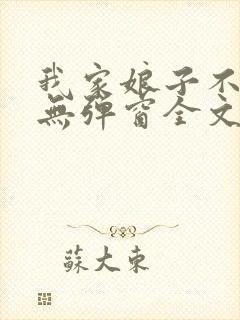 我家娘子不
無彈窗全文
蘇大東